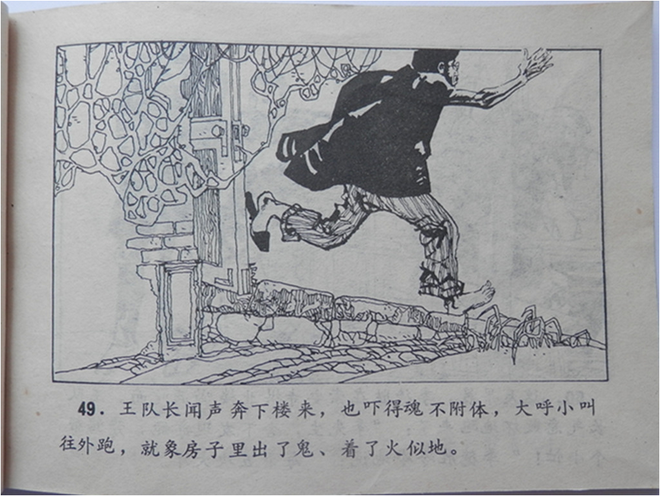 49. 王队长闻声奔下楼来，也吓得魂不附体，大呼小叫
往外跑，就象房子里出了鬼、着了火似地。